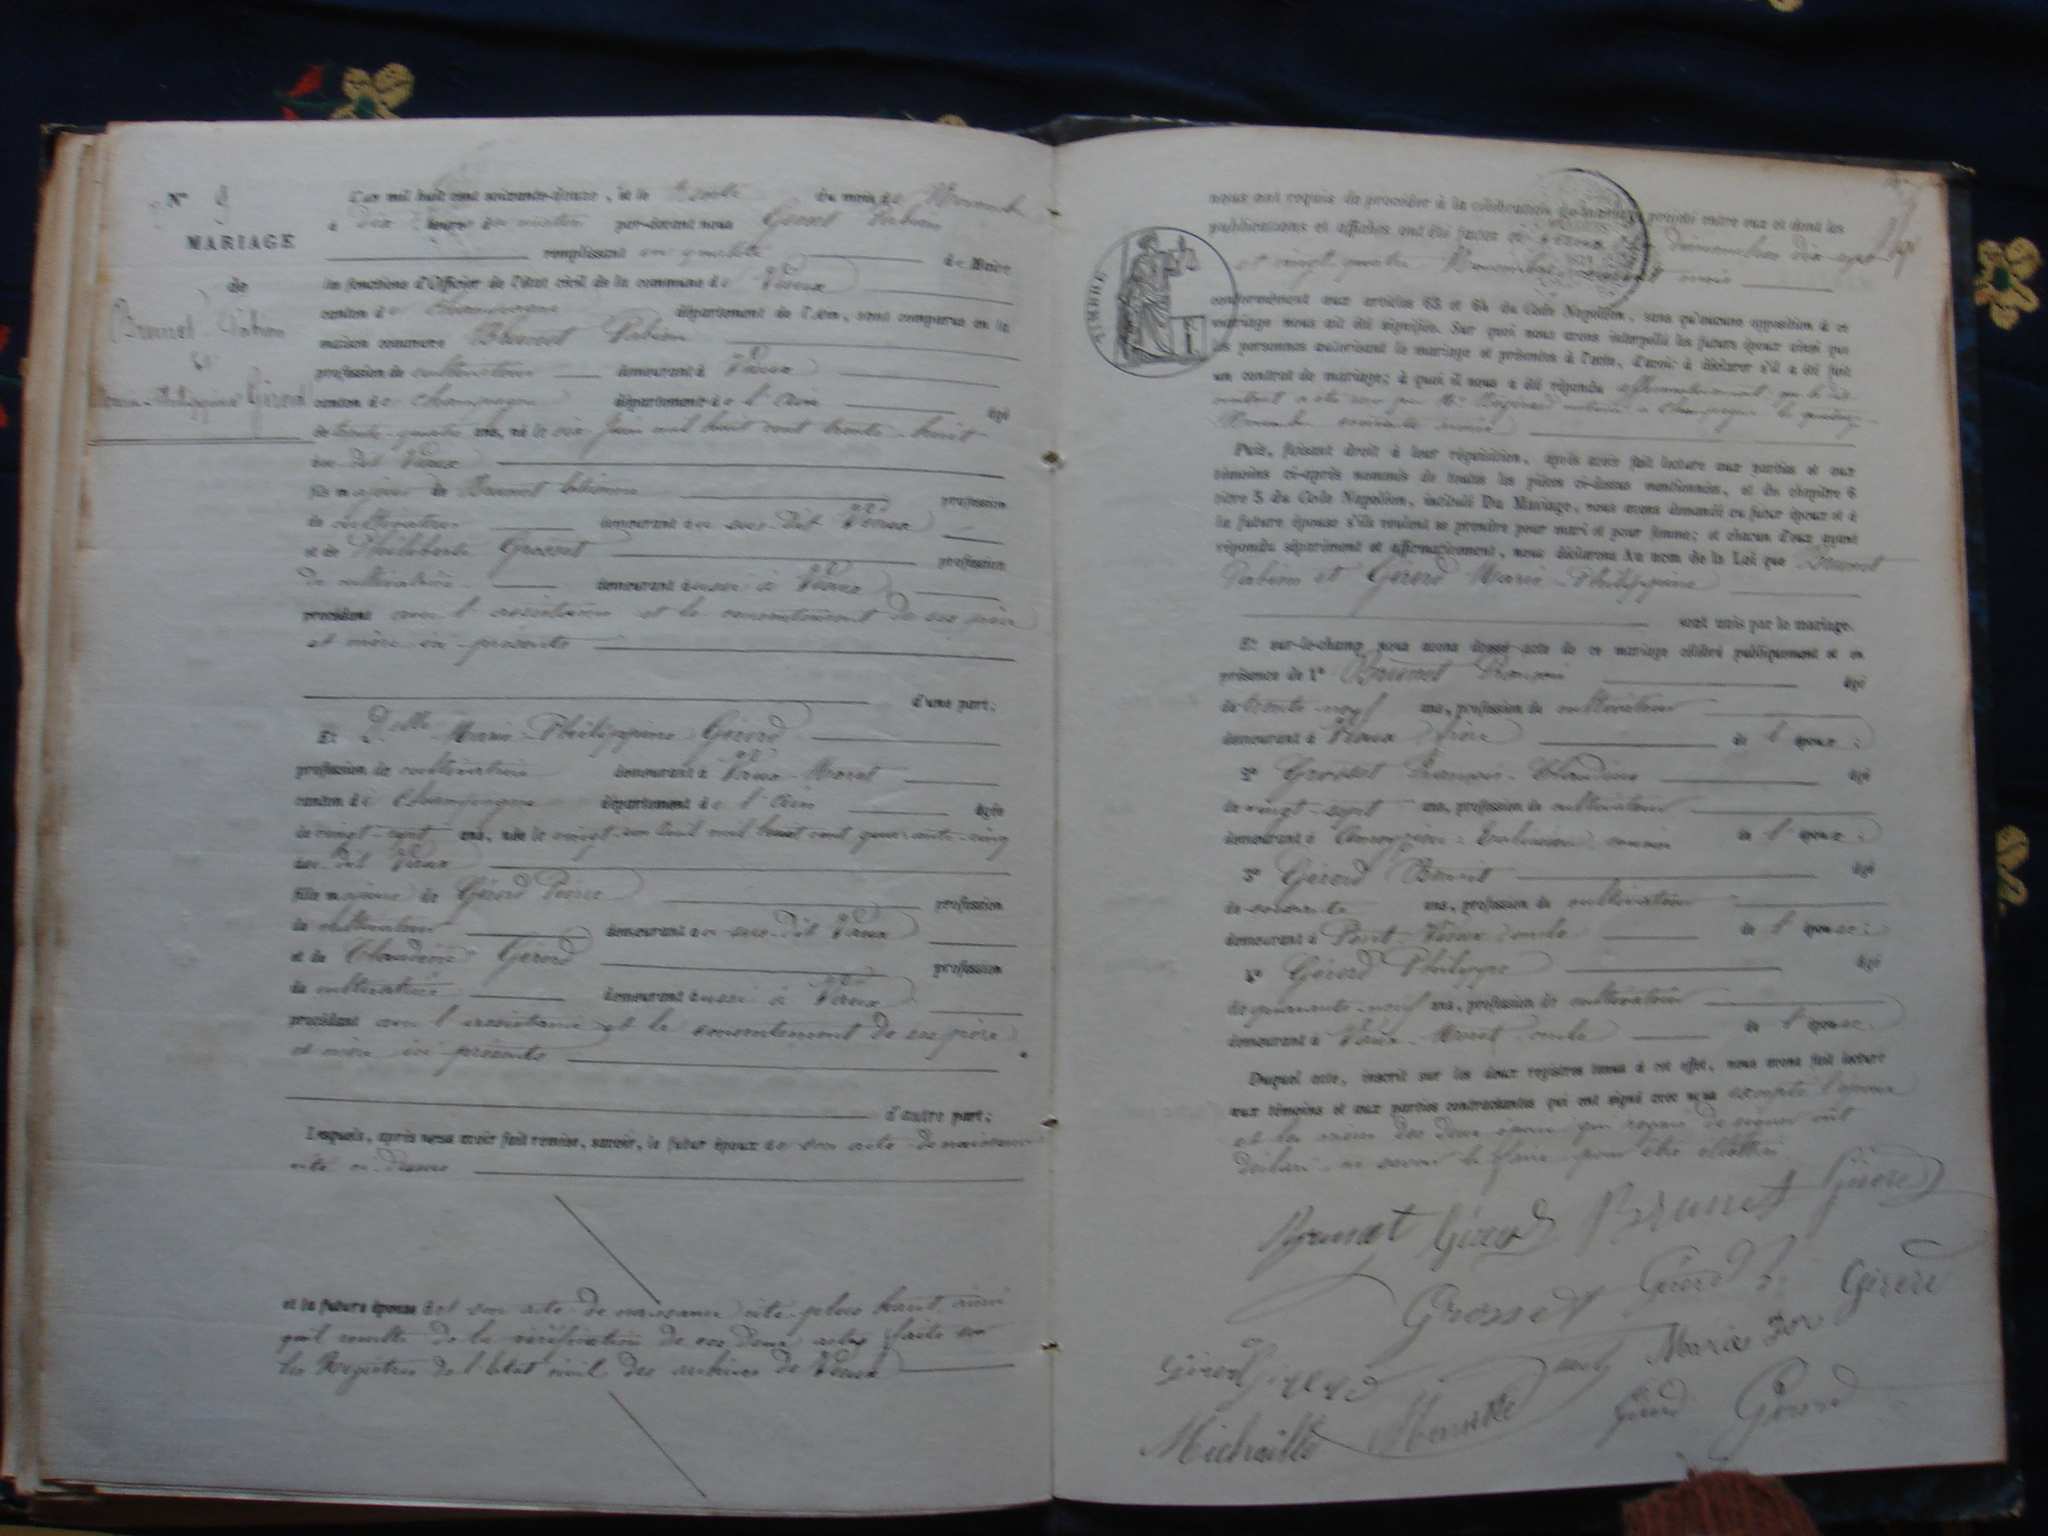 N° 9
MARIAGE
de
Brunet Fabien
&
Marie-Philippine Gérord
L'an mil huit cent soixante-douze, et le trente du mois de Novembre
à dix heures du matin par-devant nous Fabien
remplissant en qualité de Maire
les fonctions d'Officier de l'état civil de la commune de Vieux
canton de Champagne département de l'Ain, sont comparus en la
maison commune Brunet Fabien
profession de cultivateur demeurant à Vieux
canton de Champagne département de l'Ain âgé
de trente-quatre ans, né le six Juin mil huit cent trente-huit
au dit Vieux
fils majeur de Brunet profession
de cultivateur demeurant au sus-dit Vieux
et de Philiberte Grosset profession
de cultivatrice demeurant aussi à Vieux
procédant avec l'assistance et le consentement de ses père
et mère ici présents
d'une part;
Et Delle Marie-Philippine Gérord
profession de cultivatrice demeurant à
canton de Champagne département de l'Ain âgée
de vingt-sept ans, née le mil huit cent quarante-cinq
au dit Vieux
fille majeure de Gérord Pierre profession
de cultivateur demeurant au sus-dit Vieux
et de Claudine Gérord profession
de cultivatrice demeurant aussi à Vieux
procédant avec l'assistance et le consentement de ses père
et mère ici présents
d'autre part;
Lesquels, après nous avoir fait remise, savoir, le futur époux de son acte de naissance
cité ci-dessus
et la future épouse de son acte de naissance cité plus haut, ainsi
qu'il résulte de la vérification de ces deux actes faite sur
les Registres de l'état civil des archives de Vieux
nous ont requis de procéder à la célébration du mariage projeté entre eux et dont les
publications et affiches ont été faites à Vieux les dimanches dix-sept
et vingt-quatre Novembre courant mois
TIMBRE
conformément aux articles 63 et 64 du Code Napoléon, sans qu'aucune opposition à ce
mariage nous ait été signifiée. Sur quoi nous avons interpellé les futurs époux ainsi que
les personnes autorisant le mariage et présentes à l'acte, d'avoir à déclarer s'il a été fait
un contrat de mariage; à quoi il nous a été répondu affirmativement que le dit
contrat a été reçu par Me notaire à Champagne le
Novembre
Puis, faisant droit à leur réquisition, après avoir fait lecture aux parties et aux
témoins ci-après nommés de toutes les pièces ci-dessus mentionnées, et du chapitre 6
titre 5 du Code Napoléon, intitulé Du Mariage, nous avons demandé au futur époux et à
la future épouse s'ils veulent se prendre pour mari et pour femme; et chacun d'eux ayant
répondu séparément et affirmativement, nous déclarons Au nom de la Loi que Brunet
Fabien et Gérord Marie-Philippine
sont unis par le mariage.
Et sur-le-champ nous avons dressé acte de ce mariage célébré publiquement et en
présence de 1° Brunet François âgé
de trente-neuf ans, profession de cultivateur
demeurant à Vieux frère de l'époux;
2° Grosset François-Claudius âgé
de vingt-sept ans, profession de cultivateur
demeurant à cousin de l'époux;
3° Gérord Benoit âgé
de soixante ans, profession de cultivateur
demeurant à oncle de l'épouse;
4° Gérord Philippe âgé
de quarante-neuf ans, profession de cultivateur
demeurant à oncle de l'épouse.
Duquel acte, inscrit sur les deux registres tenus à cet effet, nous avons fait lecture
aux témoins et aux parties contractantes qui ont signé avec nous excepté l'époux
et les mères des deux époux qui requis de signer ont
déclaré ne savoir le faire pour être illettrés
Brunet Gérord Brunet Gérord
Grosset Gérord Gérord
Gérord Marie
Michaille Gérord